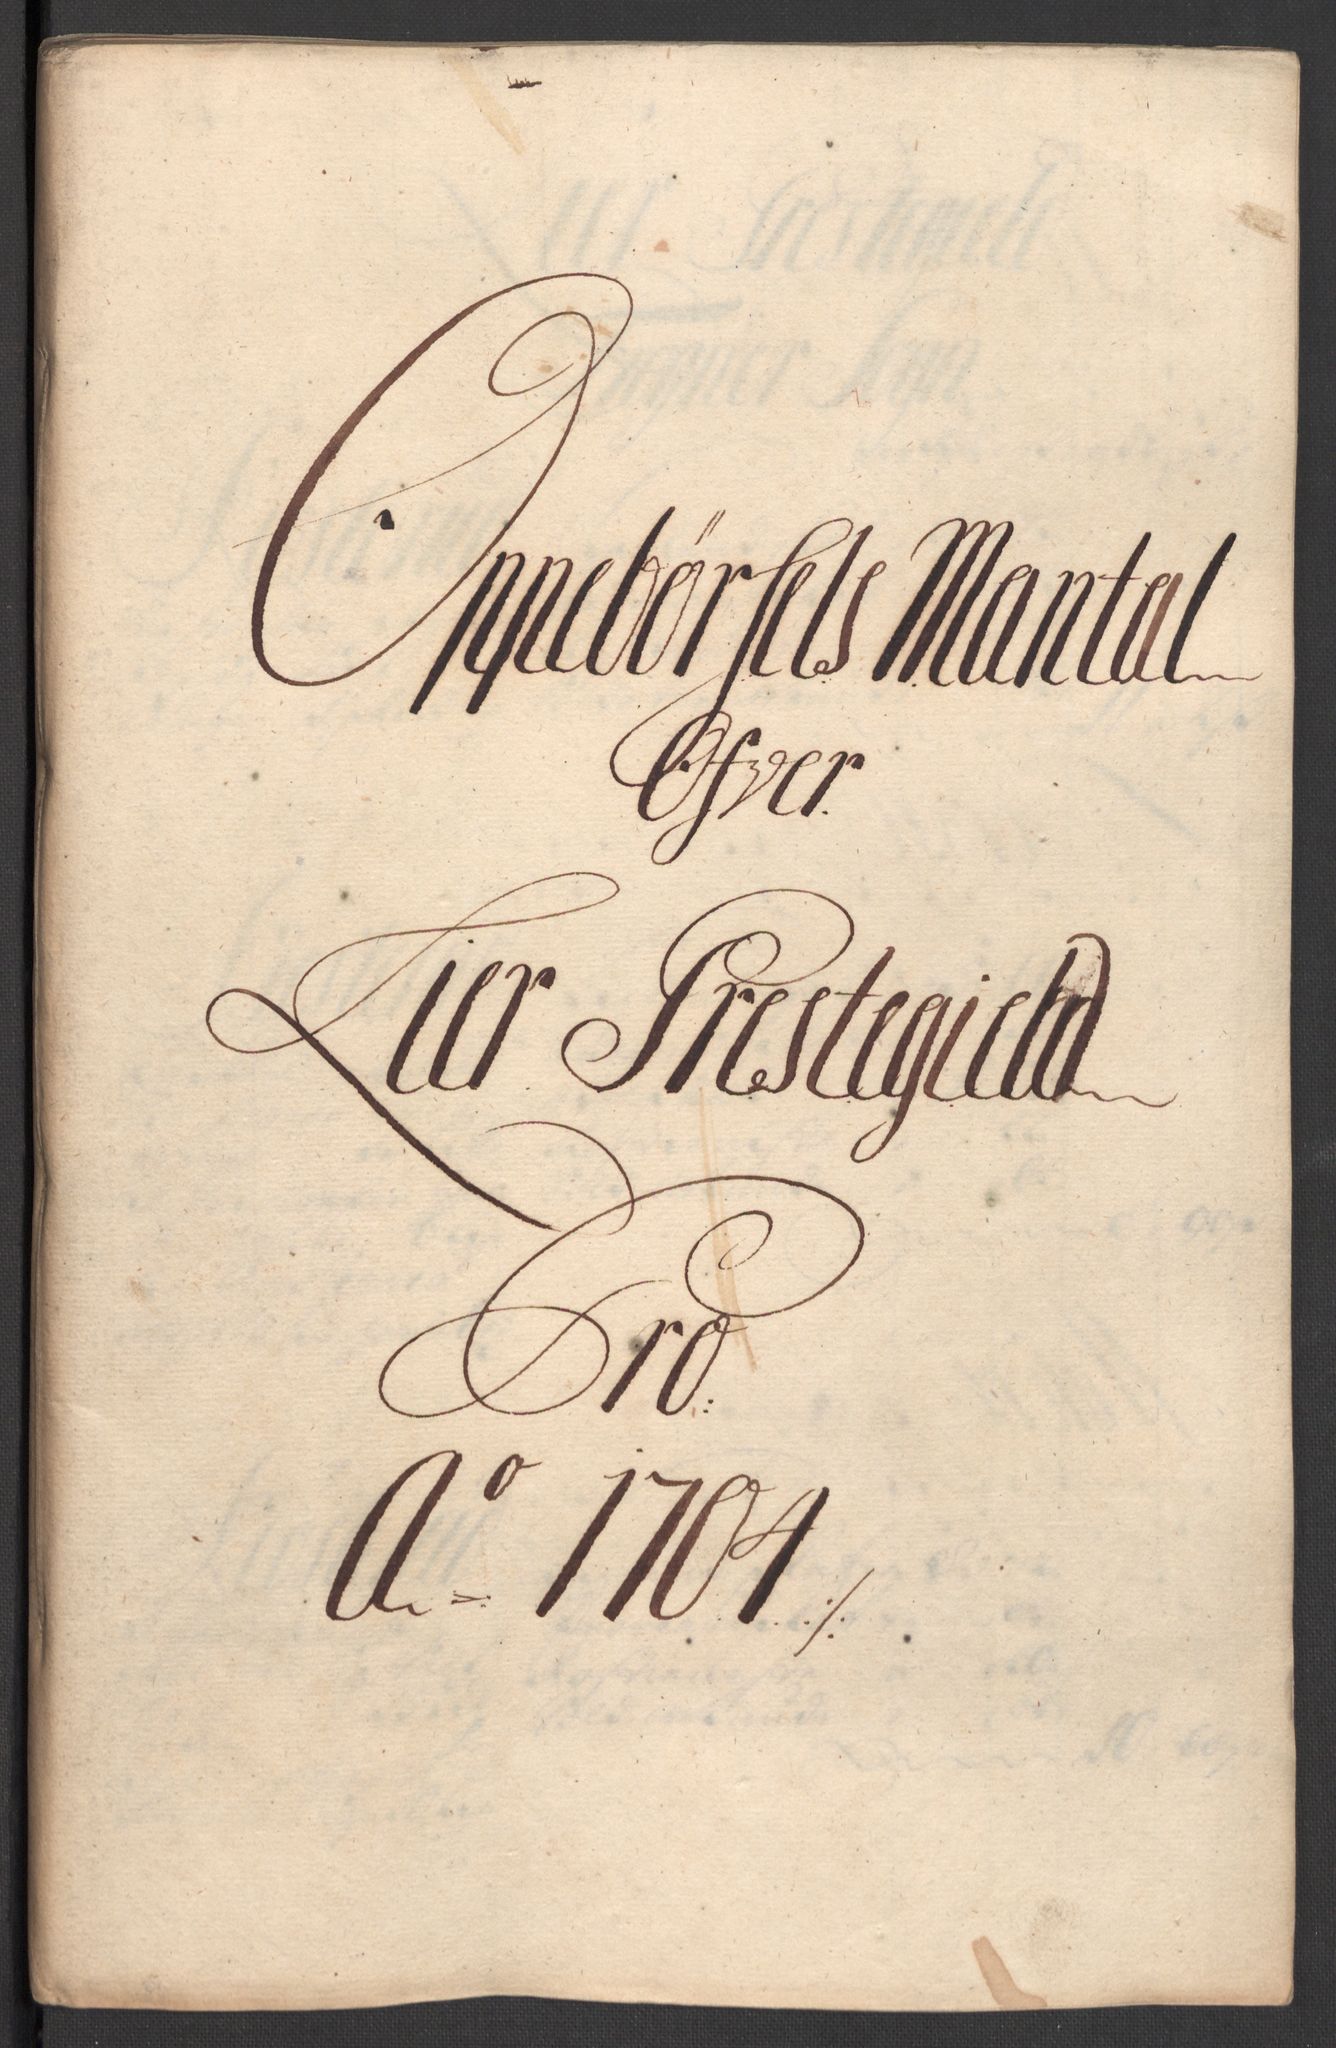 Oppebörsels Mantal
Ofver
Lier Prestegield
Pro.
Ao 1704